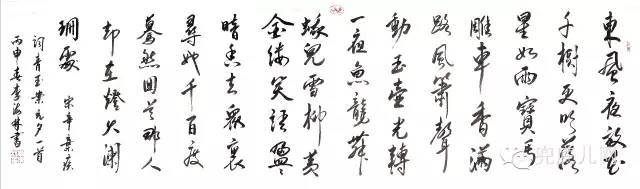 東風夜放花
千樹更吹落
星如雨寶馬
雕車香滿
路風簫聲
動玉壺光轉
一夜魚龍舞
蛾兒雪柳黃
金縷笑語盈
暗香去眾裏
尋他千百度
驀然回首那人
却在燈火闌
珊處 宋辛棄疾
詞青玉案元夕一首
丙申春李海林書